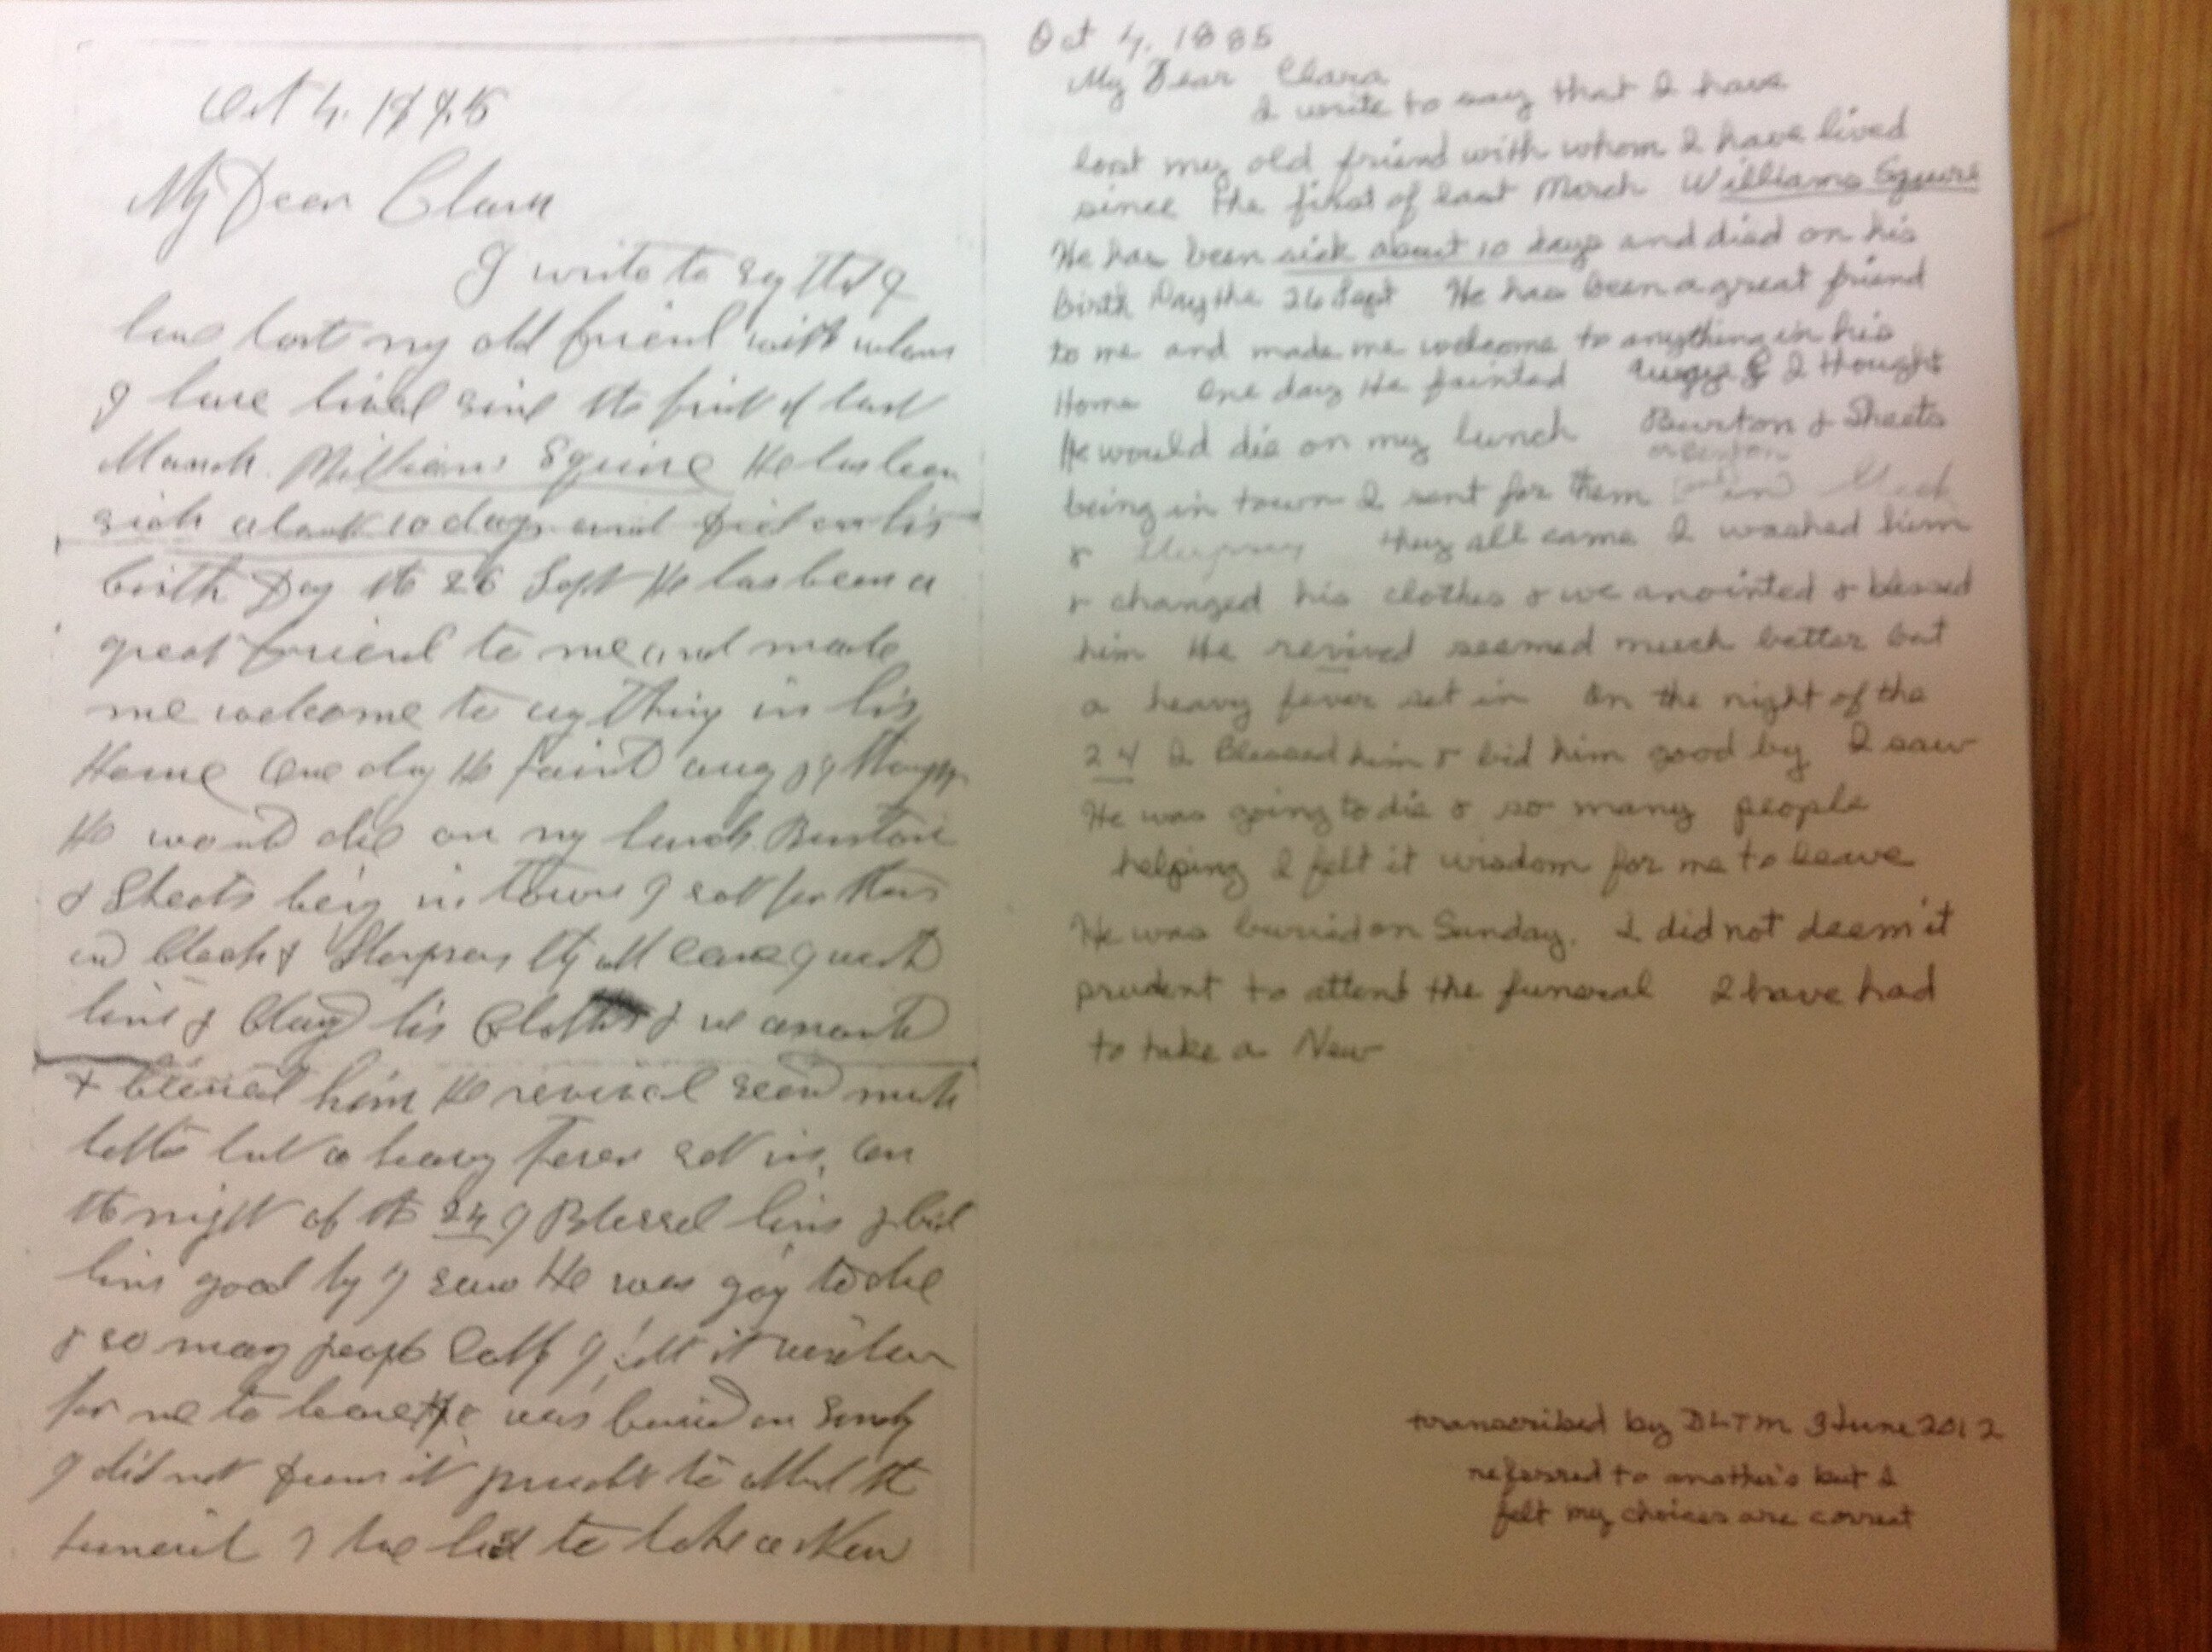 Oct 4. 1885
My Dear Clara
I write to sy that I
have lost my old friend with whom
I have lived sinc the first of last
March. Williams Squire He has been
sick about 10 days and died on his
birth Day the 26 Sept He has been a
great friend to me and made
me welcome to any thing in his
Home One day He faint away
He would die on my
& Sheets being in town I sent for them
& they all came I washed
him & his Cloths & we anointd
& blessed him He revived seemd much
better but a heavy fever set in, on
the night of the 24 I Blessed him & bid
him good by I saw He was going to die
& so many people I felt it wisdom
for me to leave He was buried on Sundy
I did not deem it prudent to attend the
funeral I have had to take a New
Oct 4, 1885
My Dear Clara
I write to say that I have
lost my old friend with whom I have lived
since the first of last March Williams Squire
He has been sick about 10 days and died on his
Birth Day the 26 Sept He has been a great friend
to me and made me welcome to anything in his
Home One day He fainted & I thought
He would die on my lunch Burton & Sheets
or Benton
being in town I sent for them
& they all came I washed him
& changed his clothes & we anointed & blessed
him He revived seemed much better but
a heavy fever set in On the night of the
24 I Blessed him & bid him good by I saw
He was going to die & so many people
helping I felt it wisdom for me to leave
He was buried on Sunday. I did not deem it
prudent to attend the funeral I have had
to take a New
transcribed by DLTM 3 June 2012
referred to another's but I
felt my choices are correct